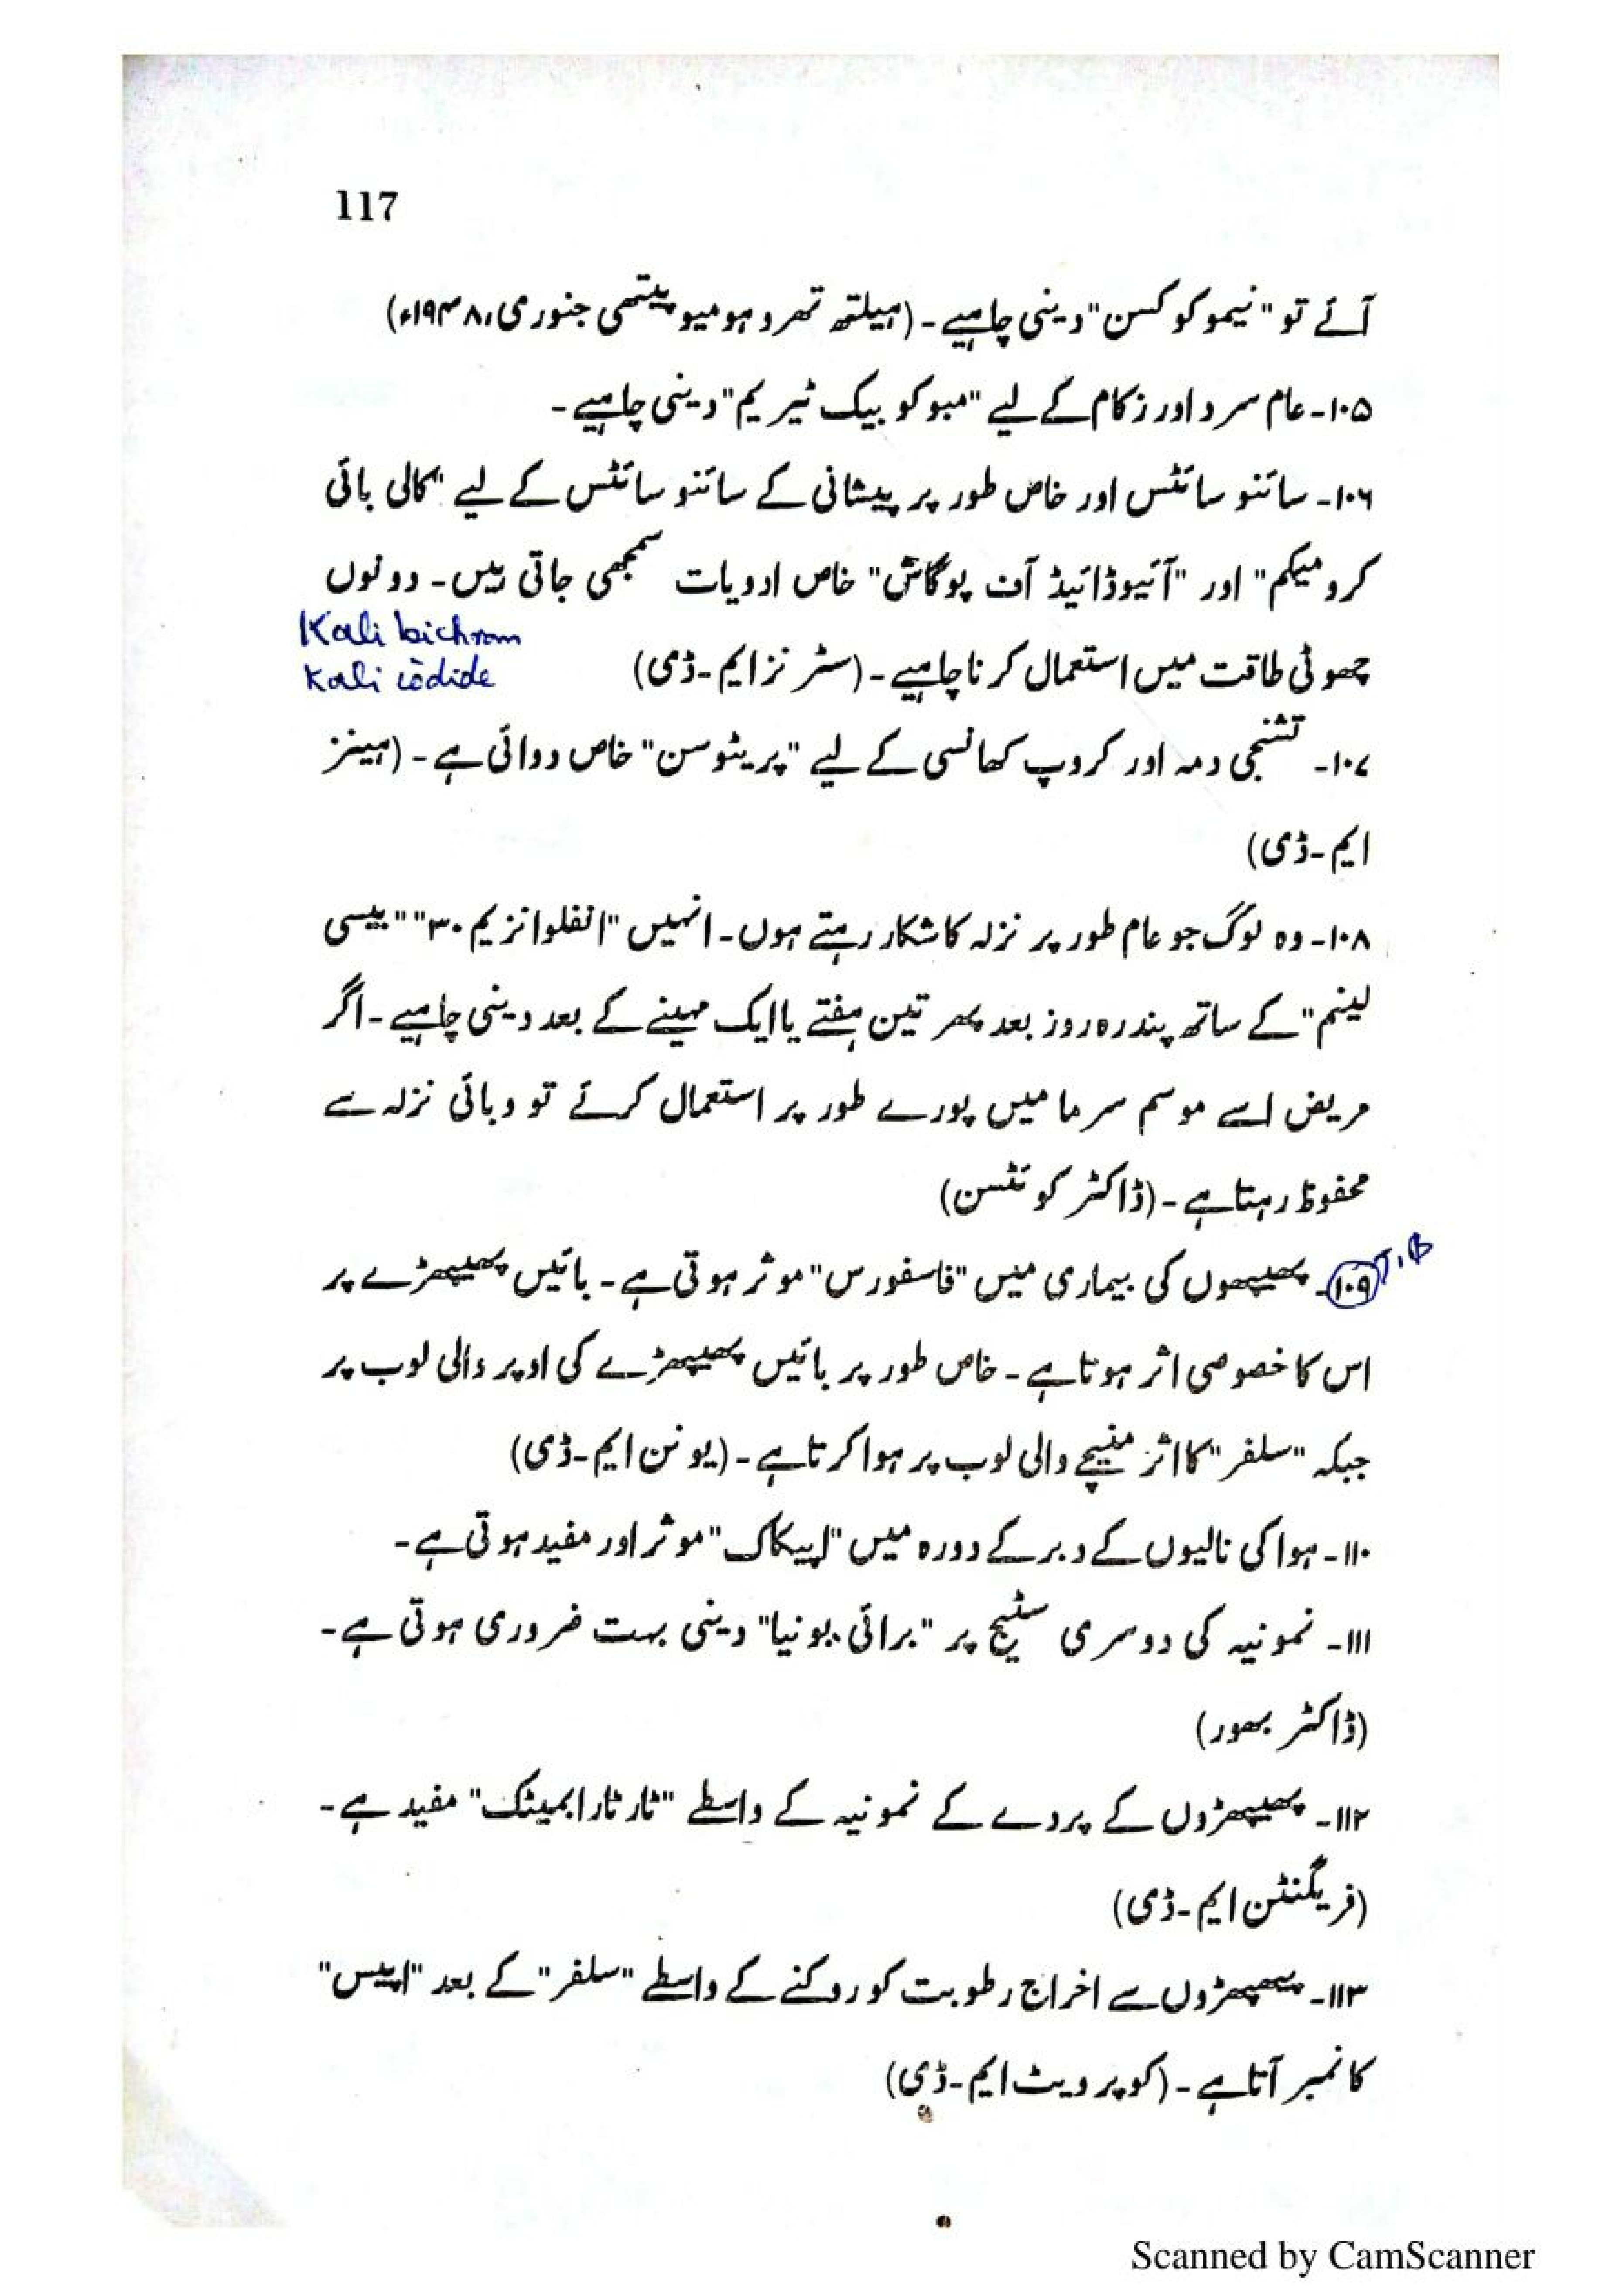 117
آئے تو "نیمو کوکسن" دینی چاہیے۔ (ہیلتھ تھرو ہومیوپیتھی جنوری، ۱۹۴۸ء)
۱۰۵۔ عام سرد اور زکام کے لیے "مبوکو بیک ٹیریم" دینی چاہیے۔
۱۰۶۔ سائنو سائٹس اور خاص طور پر پیشانی کے سائنو سائٹس کے لیے "کالی بائی
کرومیکم" اور "آئیوڈائیڈ آف پوٹاش" خاص ادویات سمجھی جاتی ہیں۔ دونوں
Kali bichrom
چھوٹی طاقت میں استعمال کرنا چاہیے۔ (سٹرنز ایم۔ڈی)
Kali iodide
۱۰۷۔ تشنجی دمہ اور کروپ کھانسی کے لیے "پریٹوسن" خاص دوائی ہے۔ (ہینز
ایم۔ڈی)
۱۰۸۔ وہ لوگ جو عام طور پر نزلہ کا شکار رہتے ہوں۔ انہیں "انفلوانزیم ۳۰" "بیسی
لینم" کے ساتھ پندرہ روز بعد پھر تین ہفتے یا ایک مہینے کے بعد دینی چاہیے۔ اگر
مریض اسے موسم سرما میں پورے طور پر استعمال کرئے تو وبائی نزلہ سے
محفوظ رہتا ہے۔ (ڈاکٹر کونٹسن)
T.B
۱۰۹۔ پھیپھوں کی بیماری میں "فاسفورس" موثر ہوتی ہے۔ بائیں پھیپھڑے پر
اس کا خصوصی اثر ہوتا ہے۔ خاص طور پر بائیں پھیپھڑے کی اوپر والی لوب پر
جبکہ "سلفر" کا اثر نیچے والی لوب پر ہوا کرتا ہے۔ (یونن ایم۔ڈی)
۱۱۰۔ ہوا کی نالیوں کے دبر کے دورہ میں "اپیکاک" موثر اور مفید ہوتی ہے۔
۱۱۱۔ نمونیہ کی دوسری سٹیج پر "برائی بونیا" دینی بہت ضروری ہوتی ہے۔
(ڈاکٹر بھور)
۱۱۲۔ پھیپھڑوں کے پردے کے نمونیہ کے واسطے "ٹارٹار ایمیٹک" مفید ہے۔
(فریگنٹن ایم۔ڈی)
۱۱۳۔ پھیپھڑوں سے اخراج رطوبت کو روکنے کے واسطے "سلفر" کے بعد "اپیس"
کا نمبر آتا ہے۔ (کوپرویٹ ایم۔ڈی)
Scanned by CamScanner